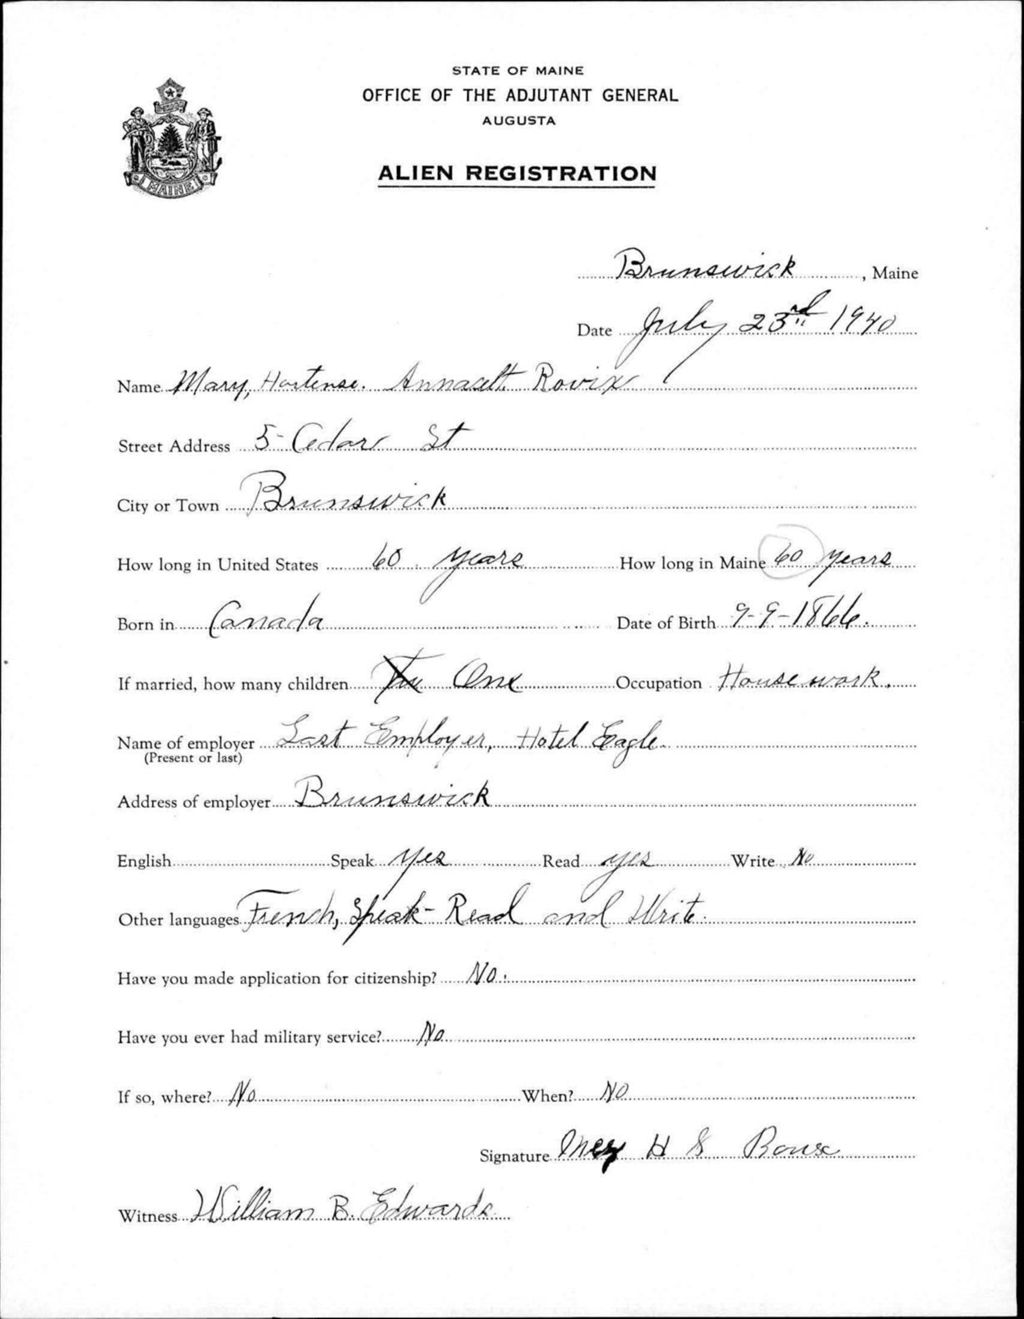 STATE OF MAINE
OFFICE OF THE ADJUTANT GENERAL
AUGUSTA
ALIEN REGISTRATION
MAINE
Brunswick, Maine
Date July 23rd 1940
Name Mary, Hortense. Roux
Street Address 5- Cedar St
City or Town Brunswick
How long in United States 60 years How long in Maine 60 years
Born in Canada Date of Birth 9-9-1866.
If married, how many children One Occupation House work.
Name of employer Last Employer, Hotel Eagle.
(Present or last)
Address of employer Brunswick
English Speak Yes Read yes Write No
Other languages French, Speak- Read and Write.
Have you made application for citizenship? No.
Have you ever had military service? No
If so, where? No When? No
Signature H Roux
Witness William B. Edwards